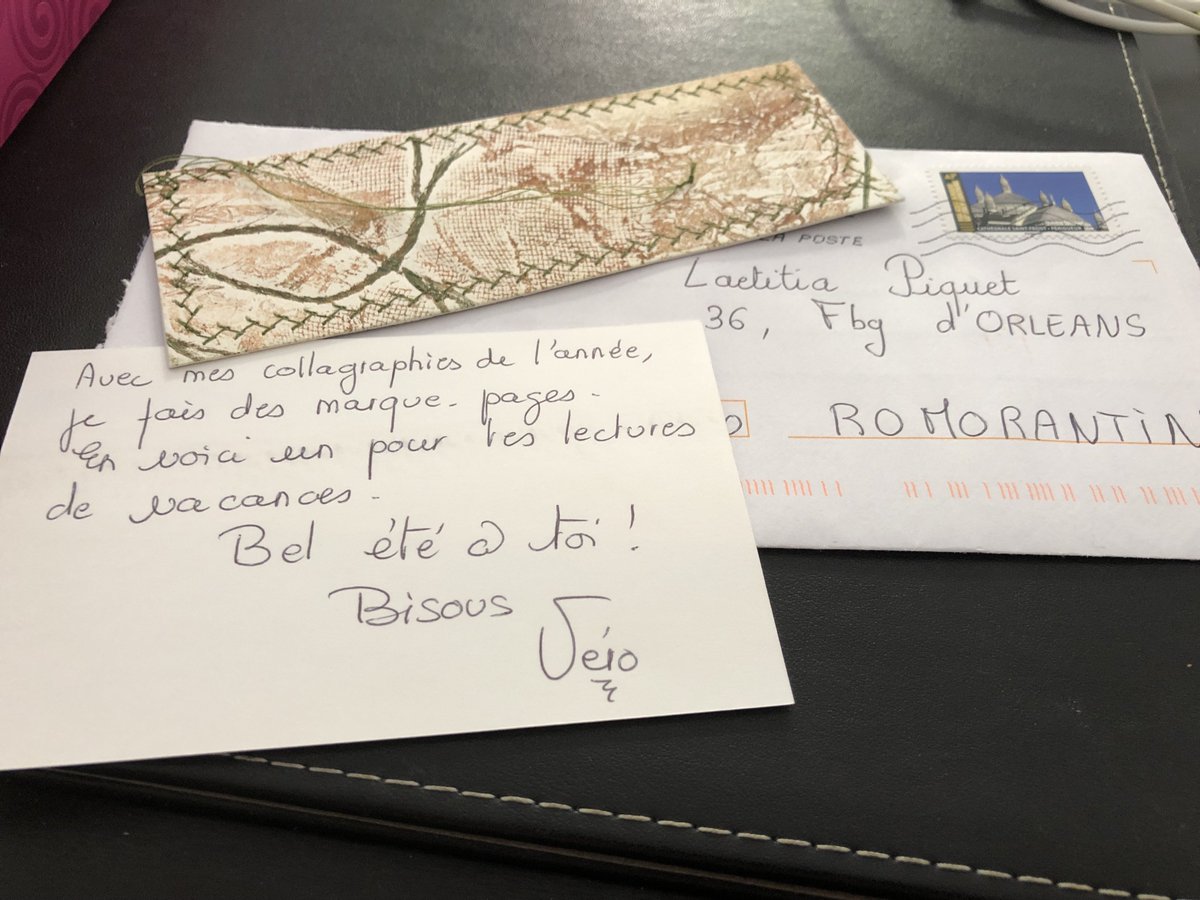 LA POSTE
CATHÉDRALE SAINT-FRONT - PÉRIGUEUX
Laetitia Piquet
36, Fbg d'ORLEANS
0 ROMORANTIN
Avec mes collagraphies de l'année,
je fais des marque-pages.
En voici un pour tes lectures
de vacances.
Bel été à toi !
Bisous
Véro